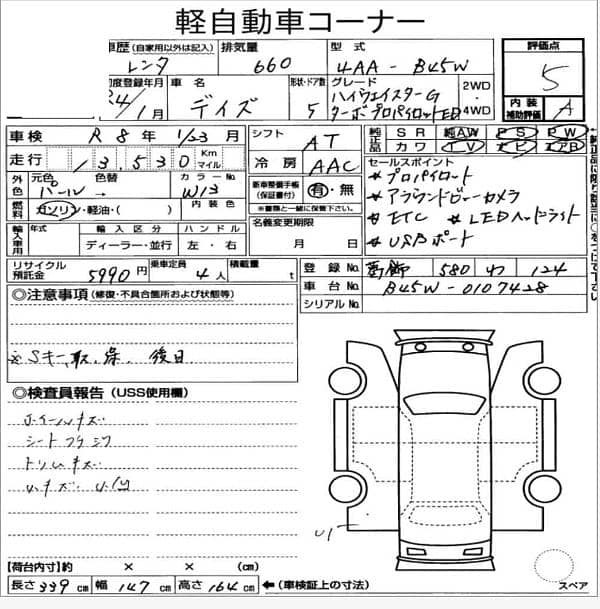 軽自動車コーナー
車歴 (自家用以外は記入) 排気量 型式 評価点
レンタ 660 4AA - B45W 5
初度登録年月 車名 形状・ドア数 グレード 2WD
R4/1月 デイズ 5 ハイウェイスターG 4WD
ターボプロパイロットED
内装補助評価 A
車検 R 8年 1/23 月 シフト AT 純正品 SR 純AW PS PW
走行 13,530 Km マイル 冷房 AAC 純正品 カワ TV ナビ エアB
外色 元色 色替 カラーNo 新車整備手帳(保証書付) 有・無 セールスポイント
パール → W13 ※書類と一緒に保管下さい。 * プロパイロット
燃料 ガソリン・軽油・( ) 内装色 名義変更期限 * アラウンドビューカメラ
輸入車用 年式 輸入区分 ハンドル 月 日 * ETC * LEDヘッドライト
ディーラー・並行 左・右 * USBポート
リサイクル預託金 5990円 乗車定員 4人 積載量 t
登録No. 葛飾 580 わ 124
車台No. B45W-0107428
シリアルNo.
◎注意事項 (修復・不具合箇所および状態等)
※Sキー、取、保、後日
◎検査員報告 (USS使用欄)
ホイールキズ
シートフクミワ
トリムキズ
小キズ
【荷台内寸】約 × × (cm)
長さ 339 cm 幅 147 cm 高さ 164 cm ←(車検証上の寸法)
スペア